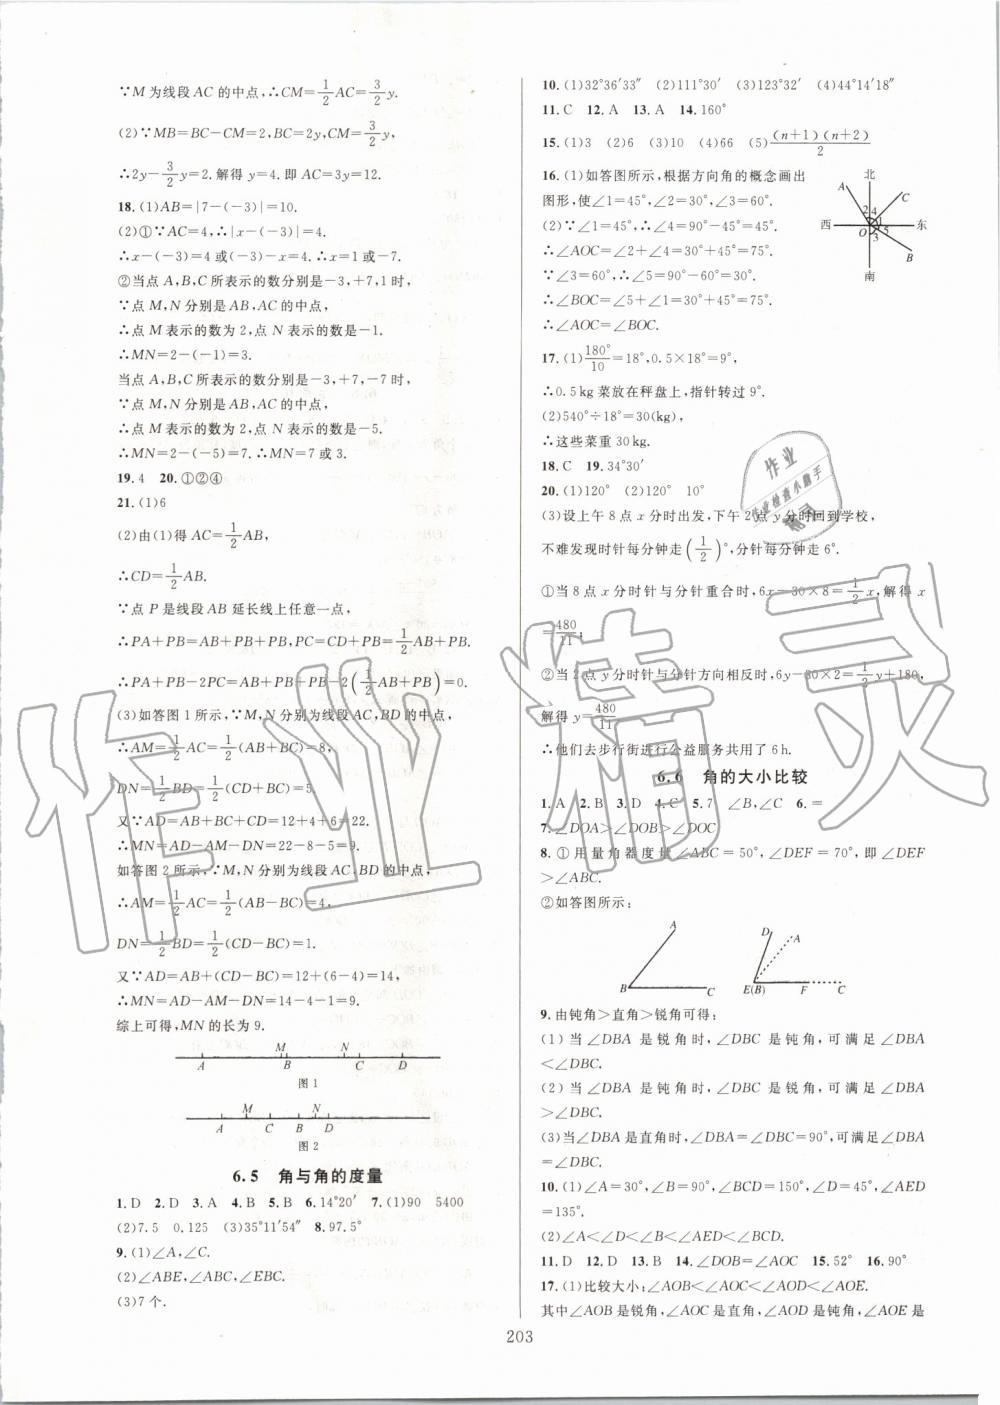 ∵M 为线段 AC 的中点,∴CM=1/2AC=3/2y.
(2)∵MB=BC-CM=2,BC=2y,CM=3/2y,
∴2y-3/2y=2.解得 y=4.即 AC=3y=12.
18.(1)AB=|7-(-3)|=10.
(2)①∵AC=4,∴|x-(-3)|=4.
∴x-(-3)=4或(-3)-x=4.∴x=1或-7.
②当点 A,B,C 所表示的数分别是-3,+7,1时,
∵点 M,N 分别是 AB,AC 的中点,
∴点 M 表示的数为 2,点 N 表示的数是-1.
∴MN=2-(-1)=3.
当点 A,B,C 所表示的数分别是-3,+7,-7时,
∵点 M,N 分别是 AB,AC 的中点,
∴点 M 表示的数为 2,点 N 表示的数是-5.
∴MN=2-(-5)=7.∴MN=7或3.
19.4 20.①②④
21.(1)6
(2)由(1)得 AC=1/2AB,
∴CD=1/2AB.
∵点 P 是线段 AB 延长线上任意一点,
∴PA+PB=AB+PB+PB,PC=CD+PB=1/2AB+PB.
∴PA+PB-2PC=AB+PB+PB-2(1/2AB+PB)=0.
(3)如答图 1 所示,∵M,N 分别为线段 AC,BD 的中点,
∴AM=1/2AC=1/2(AB+BC)=8,
DN=1/2BD=1/2(CD+BC)=5.
又∵AD=AB+BC+CD=12+4+6=22.
∴MN=AD-AM-DN=22-8-5=9.
如答图 2 所示,∵M,N 分别为线段 AC,BD 的中点,
∴AM=1/2AC=1/2(AB-BC)=4,
DN=1/2BD=1/2(CD-BC)=1.
又∵AD=AB+(CD-BC)=12+(6-4)=14,
∴MN=AD-AM-DN=14-4-1=9.
综上可得,MN 的长为 9.
M N
A B C D
图 1
M N
A C B D
图 2
6.5 角与角的度量
1.D 2.D 3.A 4.B 5.B 6.14°20′ 7.(1)90 5400
(2)7.5 0.125 (3)35°11′54″ 8.97.5°
9.(1)∠A,∠C.
(2)∠ABE,∠ABC,∠EBC.
(3)7 个.
10.(1)32°36′33″ (2)111°30′ (3)123°32′ (4)44°14′18″
11.C 12.A 13.A 14.160°
15.(1)3 (2)6 (3)10 (4)66 (5)(n+1)(n+2)/2
16.(1)如答图所示,根据方向角的概念画出
图形,使∠1=45°,∠2=30°,∠3=60°.
(2)∵∠1=45°,∴∠4=90°-45°=45°.
∴∠AOC=∠2+∠4=30°+45°=75°.
∵∠3=60°,∴∠5=90°-60°=30°.
∴∠BOC=∠5+∠1=30°+45°=75°.
∴∠AOC=∠BOC.
北
A C
2 4
1
西 东
O 5
3
B
南
17.(1)180°/10=18°,0.5×18°=9°,
∴0.5 kg 菜放在秤盘上,指针转过 9°.
(2)540°÷18°=30(kg),
∴这些菜重 30 kg.
18.C 19.34°30′
20.(1)120° (2)120° 10°
(3)设上午 8 点 x 分时出发,下午 2 点 y 分时回到学校,
不难发现时针每分钟走(1/2)°,分针每分钟走 6°.
①当 8 点 x 分时针与分针重合时,6x-30×8=1/2x,解得 x
=480/11;
②当 2 点 y 分时针与分针方向相反时,6y-30×2=1/2y+180,
解得 y=480/11.
∴他们去步行街进行公益服务共用了 6 h.
6.6 角的大小比较
1.A 2.B 3.D 4.C 5.7 ∠B,∠C 6.=
7.∠DOA>∠DOB>∠DOC
8.①用量角器度量∠ABC=50°,∠DEF=70°,即∠DEF
>∠ABC.
②如答图所示:
A D A
B C E(B) F C
9.由钝角>直角>锐角可得:
(1)当∠DBA 是锐角时,∠DBC 是钝角,可满足∠DBA
<∠DBC.
(2)当∠DBA 是钝角时,∠DBC 是锐角,可满足∠DBA
>∠DBC.
(3)当∠DBA 是直角时,∠DBA=∠DBC=90°,可满足∠DBA
=∠DBC.
10.(1)∠A=30°,∠B=90°,∠BCD=150°,∠D=45°,∠AED
=135°.
(2)∠A<∠D<∠B<∠AED<∠BCD.
11.D 12.D 13.B 14.∠DOB=∠AOC 15.52° 16.90°
17.(1)比较大小:∠AOB<∠AOC<∠AOD<∠AOE.
其中∠AOB 是锐角,∠AOC 是直角,∠AOD 是钝角,∠AOE 是
203
作业
作业检查小助手
精灵
作业精灵